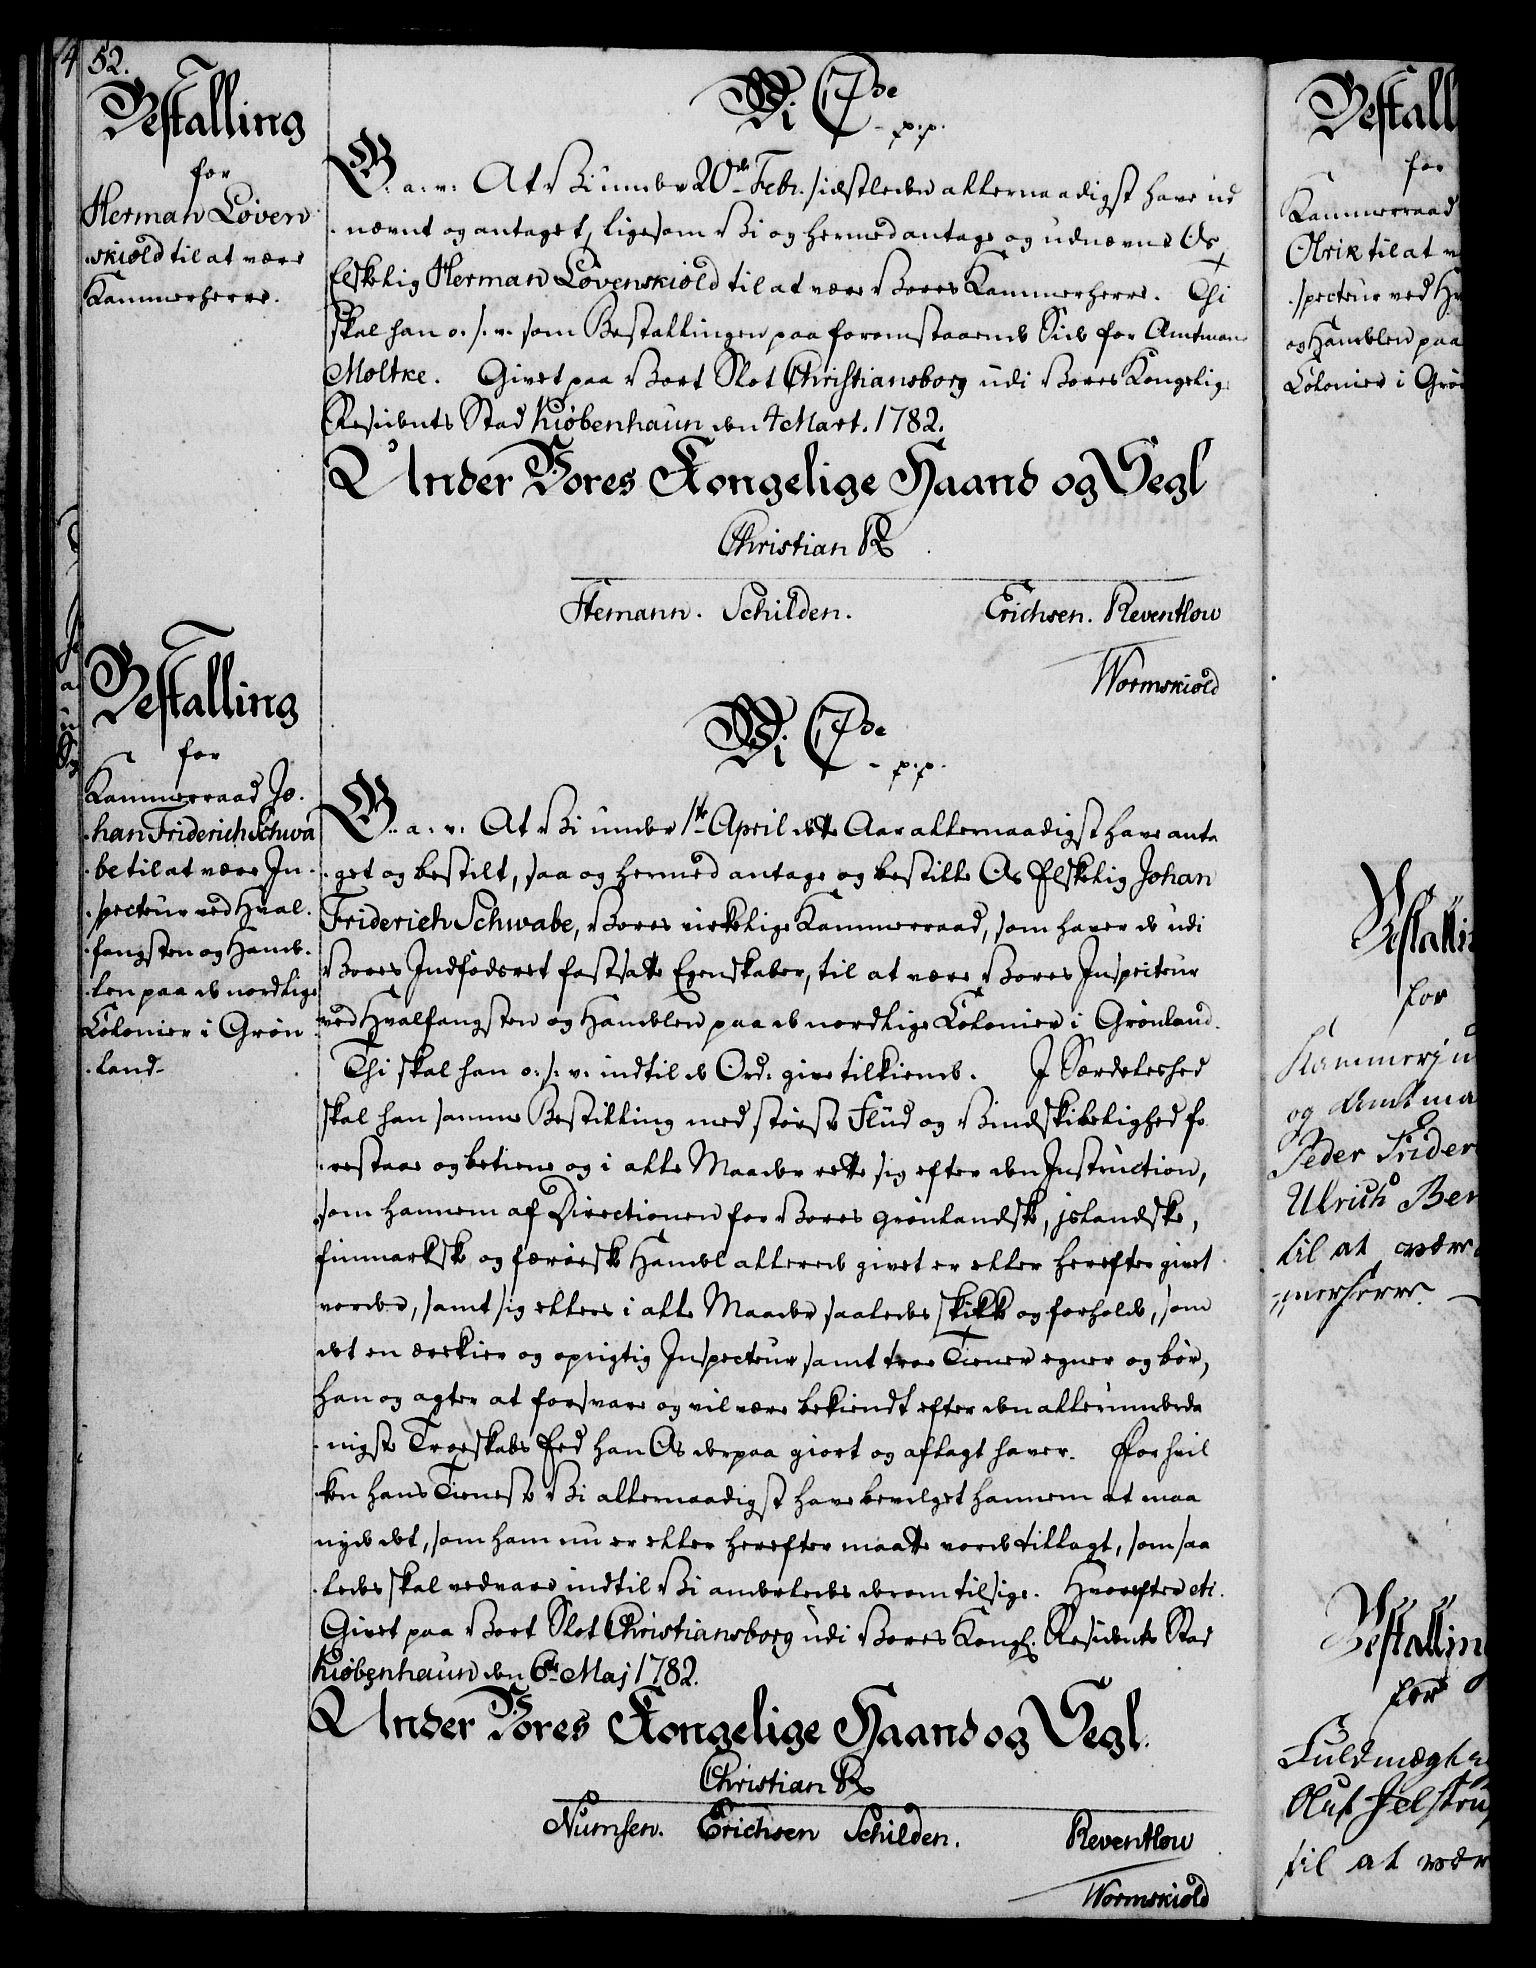 52.
Bestalling
for
Herman Löven
skiold til at være
Kammerherre.
Vi C 7de
p. p.
G. a. v: At Vi under 20de Febr. sidstleden allernaadigst have ud
nævnt og antaget, ligesom Vi og hermed antage og udnævne Os
Elskelig Herman Lövenskiold til at være Vores Kammerherre. Thi
skal han o. s. v. som Bestallingen paa foromstaaende Side for Amtmand
Moltke. Givet paa Vort Slot Christiansborg udi Vores Kongelige
Residents Stad Kiöbenhaun den 4 Mart. 1782.
Under Vores Kongelige Haand og Segl
Christian R
Stemann. Schilden. Erichsen. Reventlow
Wormskiold
Bestalling
for
Kammerraad Jo-
han Friderich Schwa
be til at være In-
specteur ved Hval-
fangsten og Hand-
len paa de nordlige
Colonier i Grøn
land.
Vi C 7de
p. p.
G. a. v. At Vi under 1te April dette Aar allernaadigst have anta
get og bestilt, saa og hermed antage og bestille Os Elskelig Johan
Friderich Schwabe, Vores virkelige Kammerraad, som haver de udi
Vores Indfødsret fastsatte Egenskaber, til at være Vores Inspecteur
ved Hvalfangsten og Handelen paa de nordlige Colonier i Grønland.
Thi skal han o. s. v. indtil de Ord: give tilkiende. I Særdeleshed
skal han samme Bestilling med største Fliid og Vindskibelighed fo
restaae og betiene og i alle Maader rette sig efter den Instruction,
som hannem af Directionen for Vores grønlandske, islandske,
finmarkske og færøeske Handel allerede givet er eller herefter givet
vorder, samt sig ellers i alle Maader saaledes skikke og forholde, som
det en ærekier og oprigtig Inspecteur samt troe Tiener egner og bør,
han og agter at forsvare og vil være bekiendt efter den allerunderda
nigste Troeskabs Eed han Os derpaa giort og aflagt haver. For hvil
ken hans Tieneste Vi allernaadigst have bevilget hannem at maa
nyde det, som ham nu er eller herefter maatte vorde tillagt, som saa
ledes skal vedvare indtil Vi anderledes derom tilsige. Hvorefter etc.
Givet paa Vort Slot Christiansborg udi Vores Kongl. Residents Stad
Kiöbenhaun den 6te Maj 1782.
Under Vores Kongelige Haand og Segl.
Christian R
Numsen. Erichsen Schilden. Reventlow
Wormskiold
Bestall
for
Kammerraad
Olrik til at v
specteur ved Hv
og Handelen paa
Colonier i Grøn
Bestalli
for
Kammerju
og Amtma
Peder Frider
Ulrich Ben
til at være
merherre.
Bestalling
for
Fuldmægt
Oluf Jelstru
til at vær